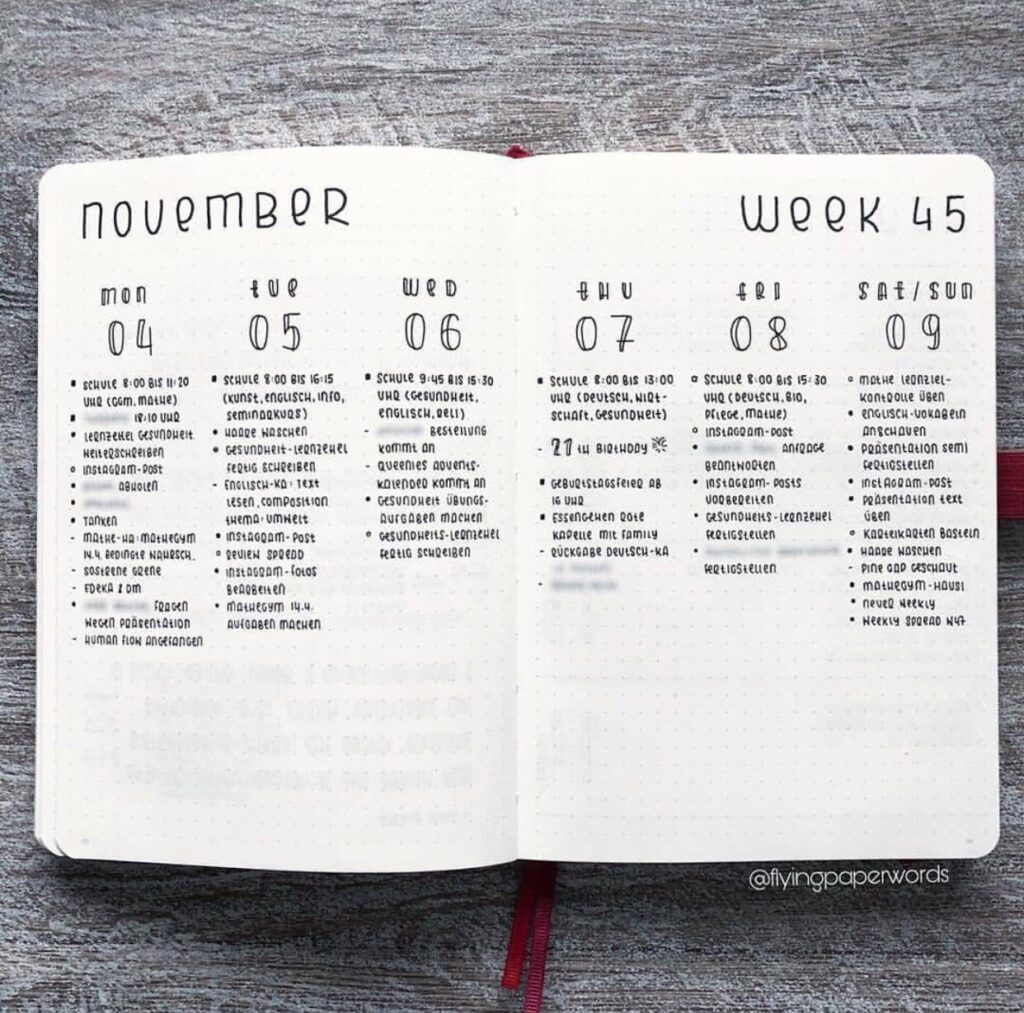 November
Week 45
Mon
04
▪ Schule 8:00 bis 11:20
Uhr (GGM, Mathe)
▪ 18:10 Uhr
• Lernzehel Gesundheit
weiterschreiben
○ Instagram-Post
• abholen
•
• Tanken
- Mathe-HA: Mathegym
14.4. bedingte Wahrsch.
- Sostrene Grene
- Edeka & DM
• Fragen
wegen Präsentation
- Human Flow angefangen
Tue
05
▪ Schule 8:00 bis 16:15
(Kunst, Englisch, Info,
Seminarkurs)
• Haare waschen
• Gesundheit-Lernzehel
fertig schreiben
- Englisch-KA: Text
lesen, Composition
Thema: Umwelt
• Instagram-Post
○ Review Spread
• Instagram-Fotos
bearbeiten
• Mathegym 14.4.
Aufgaben machen
Wed
06
▪ Schule 9:45 bis 15:30
Uhr (Gesundheit,
Englisch, Reli)
- Bestellung
kommt an
- Queenies Advents-
kalender kommt an
• Gesundheit Übungs-
aufgaben machen
○ Gesundheits-Lernzehel
fertig schreiben
Thu
07
▪ Schule 8:00 bis 13:00
Uhr (Deutsch, Wirt-
schaft, Gesundheit)
- 21th Birthday
▪ Geburtstagsfeier ab
16 Uhr
▪ Essengehen Rote
Kapelle mit Family
- Rückgabe Deutsch-KA
-
Fri
08
○ Schule 8:00 bis 15:30
Uhr (Deutsch, Bio,
Pflege, Mathe)
○ Instagram-Post
• Anfrage
beantworten
• Instagram-Posts
vorbereiten
• Gesundheits-Lernzehel
fertigstellen
•
fertigstellen
Sat/Sun
09
○ Mathe Lernziel-
kontrolle üben
• Englisch-Vokabeln
anschauen
• Präsentation Semi
fertigstellen
• Instagram-Post
• Präsentation Text
üben
○ Karteikarten basteln
• Haare waschen
- Pine Gap geschaut
• Mathegym-Hausi
• neuer Weekly
• Weekly Spread W47
@flyingpaperwords